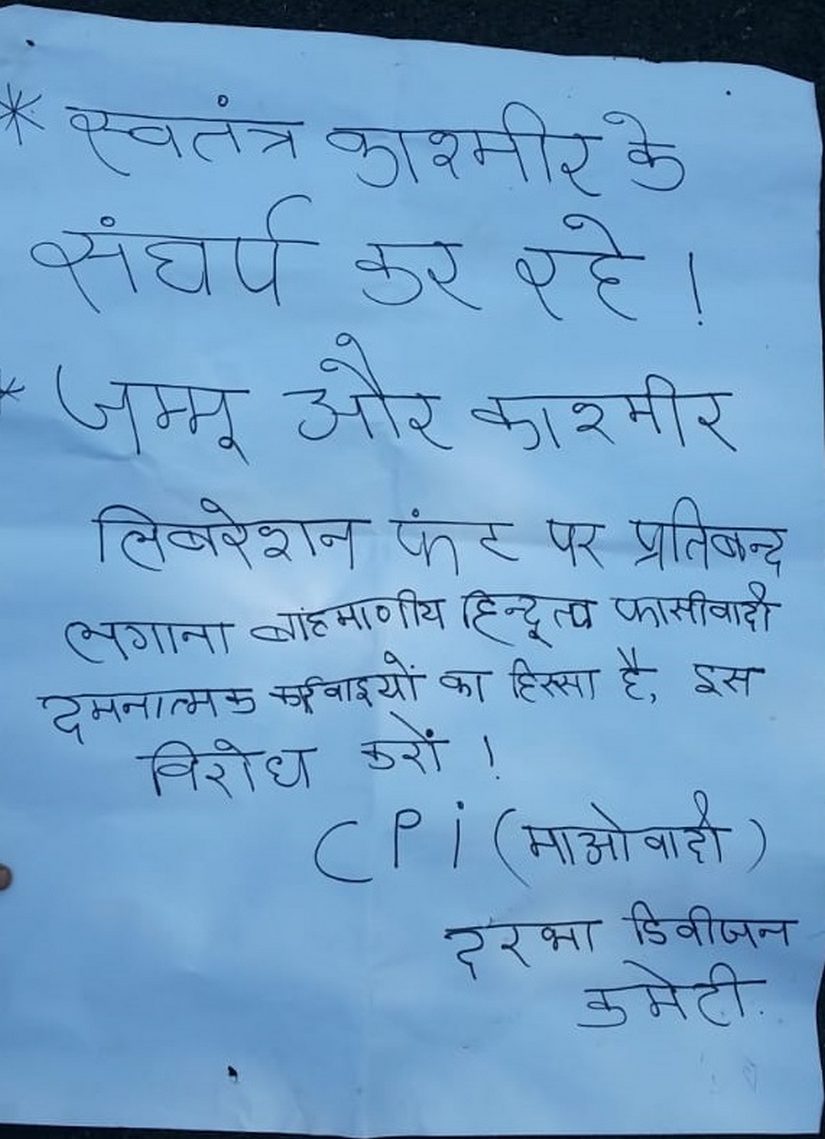 * स्वतंत्र काश्मीर के
संघर्ष कर रहे !
* जम्मू और काश्मीर
लिबरेशन फंट पर प्रतिबन्द
लगाना बांहमाणीय हिन्दूत्व फासीवादी
दमनात्मक कार्रवाइयों का हिस्सा है, इस
विरोध करों !
CPi (माओवादी)
दरभा डिवीजन
कमेटी.